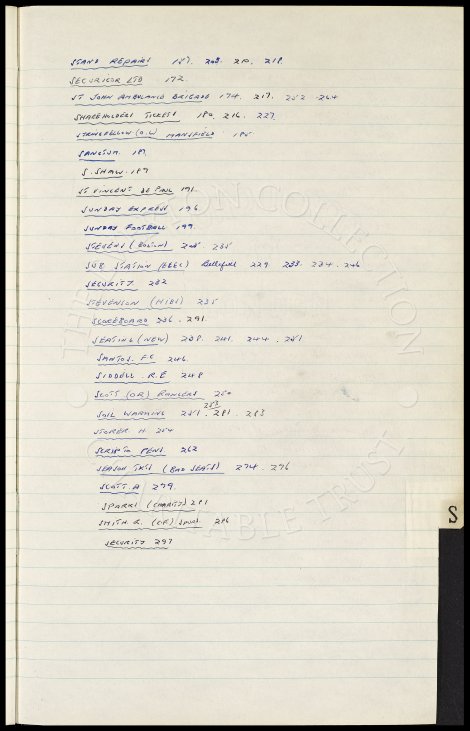 STAND REPAIRS 157. 208. 210. 218
SECURICOR LTD 172
ST JOHN AMBULANCE BRIGADE 174. 217. 252. 264
SHAREHOLDERS TICKETS 180. 216. 227
STRINGFELLOW (O.L) MANSFIELD 185
189
S. SHAW. 189
ST VINCENT DE PAUL 191
SUNDAY EXPRESS 196
SUNDAY FOOTBALL 199
STEVENS (BOLTON) 205. 235
SUB STATION (EEC) 229. 233. 234. 246
SECURITY 232
STEVENSON (HIBS) 235
SCOREBOARD 236. 291
SEATING (NEW) 238. 241. 244. 251
SANTOS. F.C 246
SIDDELL. R.E 248
SCOTT (DR) RANGERS 250
253
SOIL WARMING 251. 281. 283
STORER H 254
SCRIPTO PENS 262
SEASON TKTS (BAD SEATS) 274. 276
SCOTT. A 279
SPARKS (CHARITY) 281
SMITH R. (DR) SPURS. 286
SECURITY 297
S
THE COLLECTION
CHARITABLE TRUST